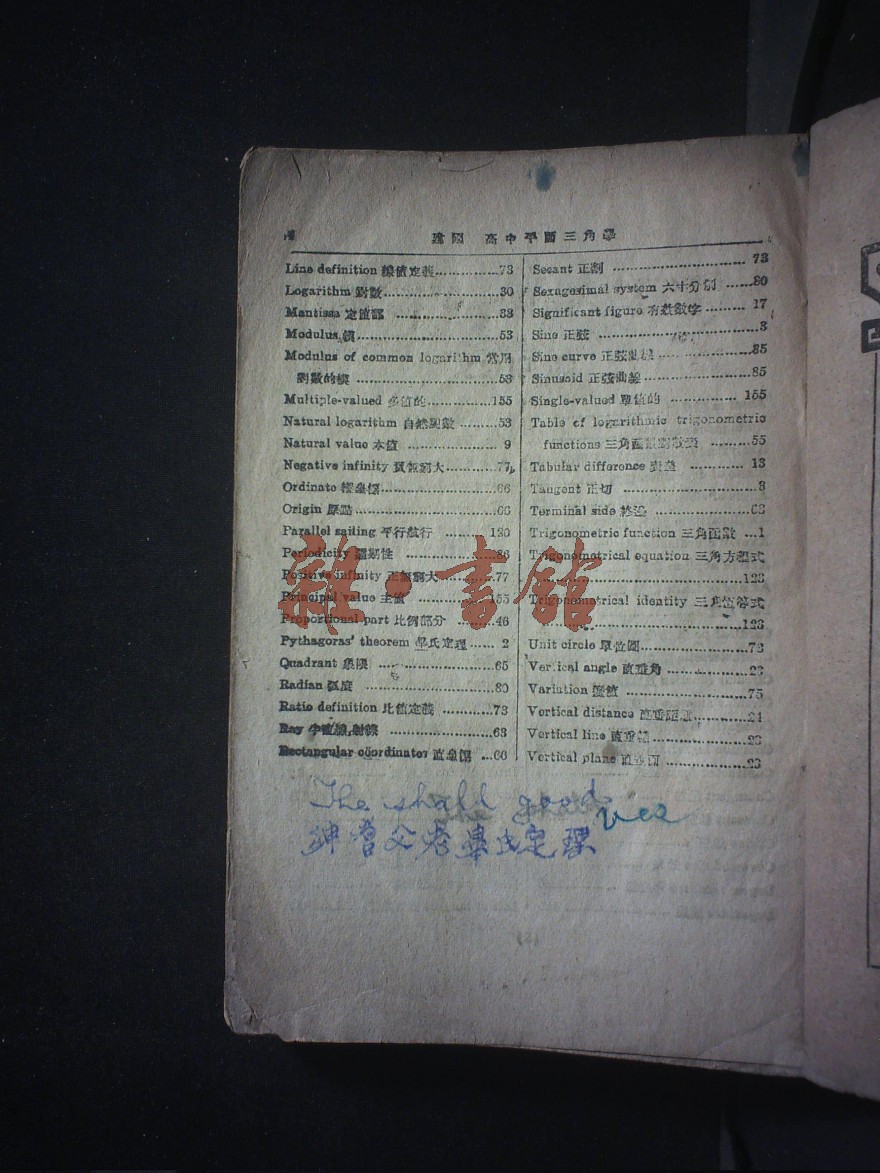 建國 高中平面三角學
Line definition 線值定義 73
Logarithm 對數 30
Mantissa 定值部 33
Modulus 模 53
Modulus of common logarithm 常用
對數的模 53
Multiple-valued 多值的 155
Natural logarithm 自然對數 53
Natural value 本值 9
Negative infinity 負無窮大 77
Ordinate 縱坐標 66
Origin 原點 66
Parallel sailing 平行航行 130
Periodicity 週期性 86
Positive infinity 正無窮大 77
Principal value 主值 155
Proportional part 比例部分 46
Pythagoras' theorem 畢氏定理 2
Quadrant 象限 65
Radian 弧度 80
Ratio definition 比值定義 73
Ray 半直線,射線 63
Rectangular coordinates 直坐標 66
Secant 正割 73
Sexagesimal system 六十分制 80
Significant figure 有效數字 17
Sine 正弦 3
Sine curve 正弦曲線 85
Sinusoid 正弦曲線 85
Single-valued 單值的 155
Table of logarithmic trigonometric
functions 三角函數對數表 55
Tabular difference 表差 13
Tangent 正切 3
Terminal side 終邊 63
Trigonometric function 三角函數 1
Trigonometrical equation 三角方程式
123
Trigonometrical identity 三角恆等式
123
Unit circle 單位圓 73
Vertical angle 直垂角 23
Variation 變值 75
Vertical distance 直垂距離 24
Vertical line 直垂線 23
Vertical plane 直垂面 23
The shall good
紳耆父老畢氏定理
雜·書館